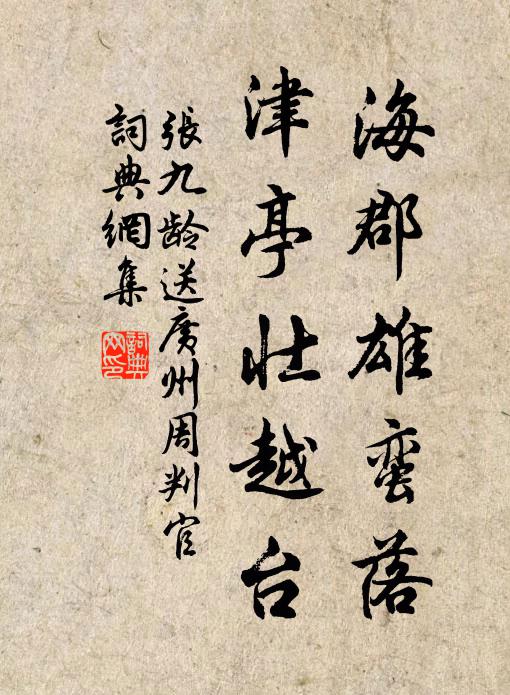 海郡雄蛮落
津亭壮越台
張九龄送廣州周判官
詞典網集
詞典网印